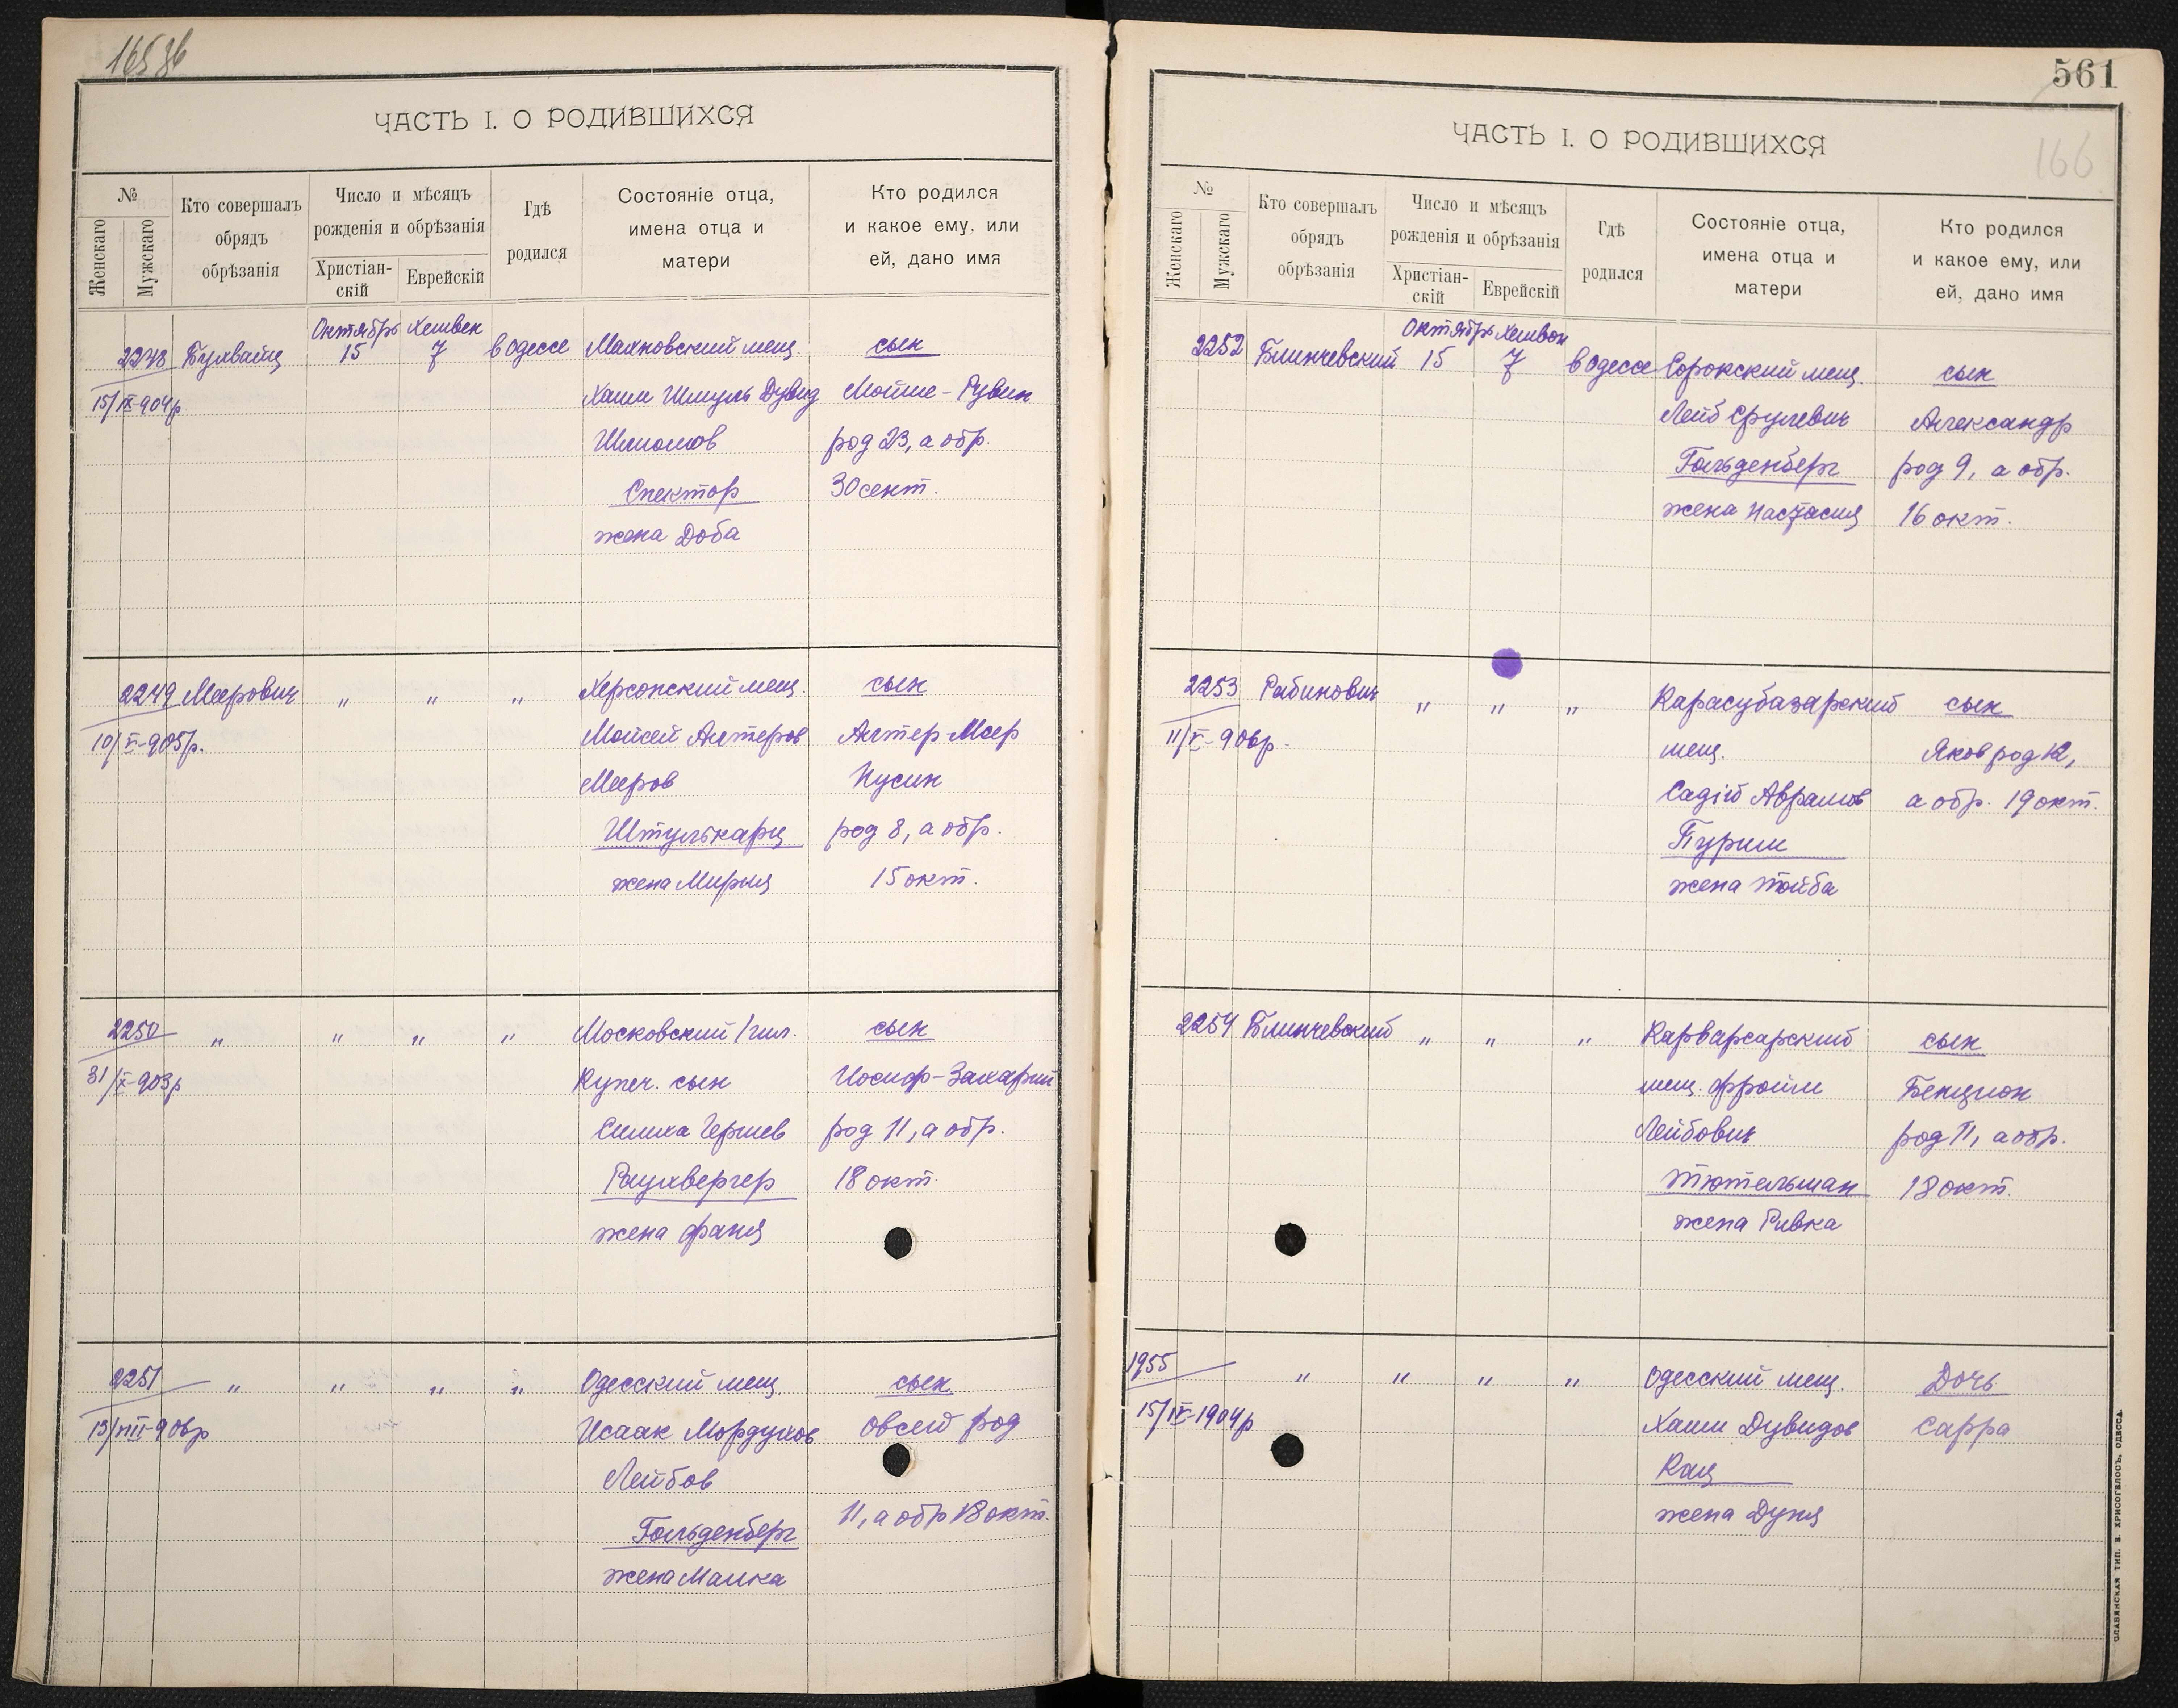 561
166
ЧАСТЬ I. О РОДИВШИХСЯ
№
Женскаго
Мужскаго
Кто совершалъ
обрядъ
обрѣзанія
Число и мѣсяцъ
рожденія и обрѣзанія
Христіан-
скій
Еврейскій
Гдѣ
родился
Состояніе отца,
имена отца и
матери
Кто родился
и какое ему, или
ей, дано имя
2248
15/IX-904р
Октябрь Хешвен
15 7 в Одессе
Махновский мещ.
Хаим Шмуль Дувид
Шлиомов
Спектор
жена Доба
сын
Мойше-Рувин
род 23, а обр.
30 сент.
2249 Меерович " " "
10/ -905р.
Херсонский мещ.
Мойсей Алтеров
Мееров
Штулькарц
жена Мирия
сын
Алтер-Меер
Нусин
род 8, а обр.
15 окт.
2250 " " " "
31/X-903р
Московский 1 гил.
купеч. сын
Симха Гершев
Раухвергер
жена Фаня
сын
Иосиф-Захарий
род 11, а обр.
18 окт.
2251 " " " "
13/VIII-906р
Одесский мещ.
Исаак Мордухов
Лейбов
Гольденберг
жена Малка
сын
Овсей род
11, а обр 18 окт.
ЧАСТЬ I. О РОДИВШИХСЯ
№
Женскаго
Мужскаго
Кто совершалъ
обрядъ
обрѣзанія
Число и мѣсяцъ
рожденія и обрѣзанія
Христіан-
скій
Еврейскій
Гдѣ
родился
Состояніе отца,
имена отца и
матери
Кто родился
и какое ему, или
ей, дано имя
Октябрь Хешвон
2252 Блинчевский 15 7 в Одессе
Сорокский мещ.
Лейб Срулевич
Гольденберг
жена Настасия
сын
Александр
род 9, а обр.
16 окт.
2253 Рабинович " " "
11/ -906р.
Карасубазарский
мещ.
Садий Аврамов
Пурим
жена Тойба
сын
Яков род 12,
а обр. 19 окт.
2254 Блинчевский " " "
Карварсарский
мещ. Фройм
Лейбович
Тютельман
жена Ривка
сын
Бенцион
род 11, а обр.
18 окт.
1955 " " " "
15/IX-1904р
Одесский мещ.
Хаим Дувидов
Кац
жена Дуня
Дочь
Сарра
СЛАВЯНСКАЯ ТИП. Е. ХРИСОГЕЛОСЪ, ОДЕССА.